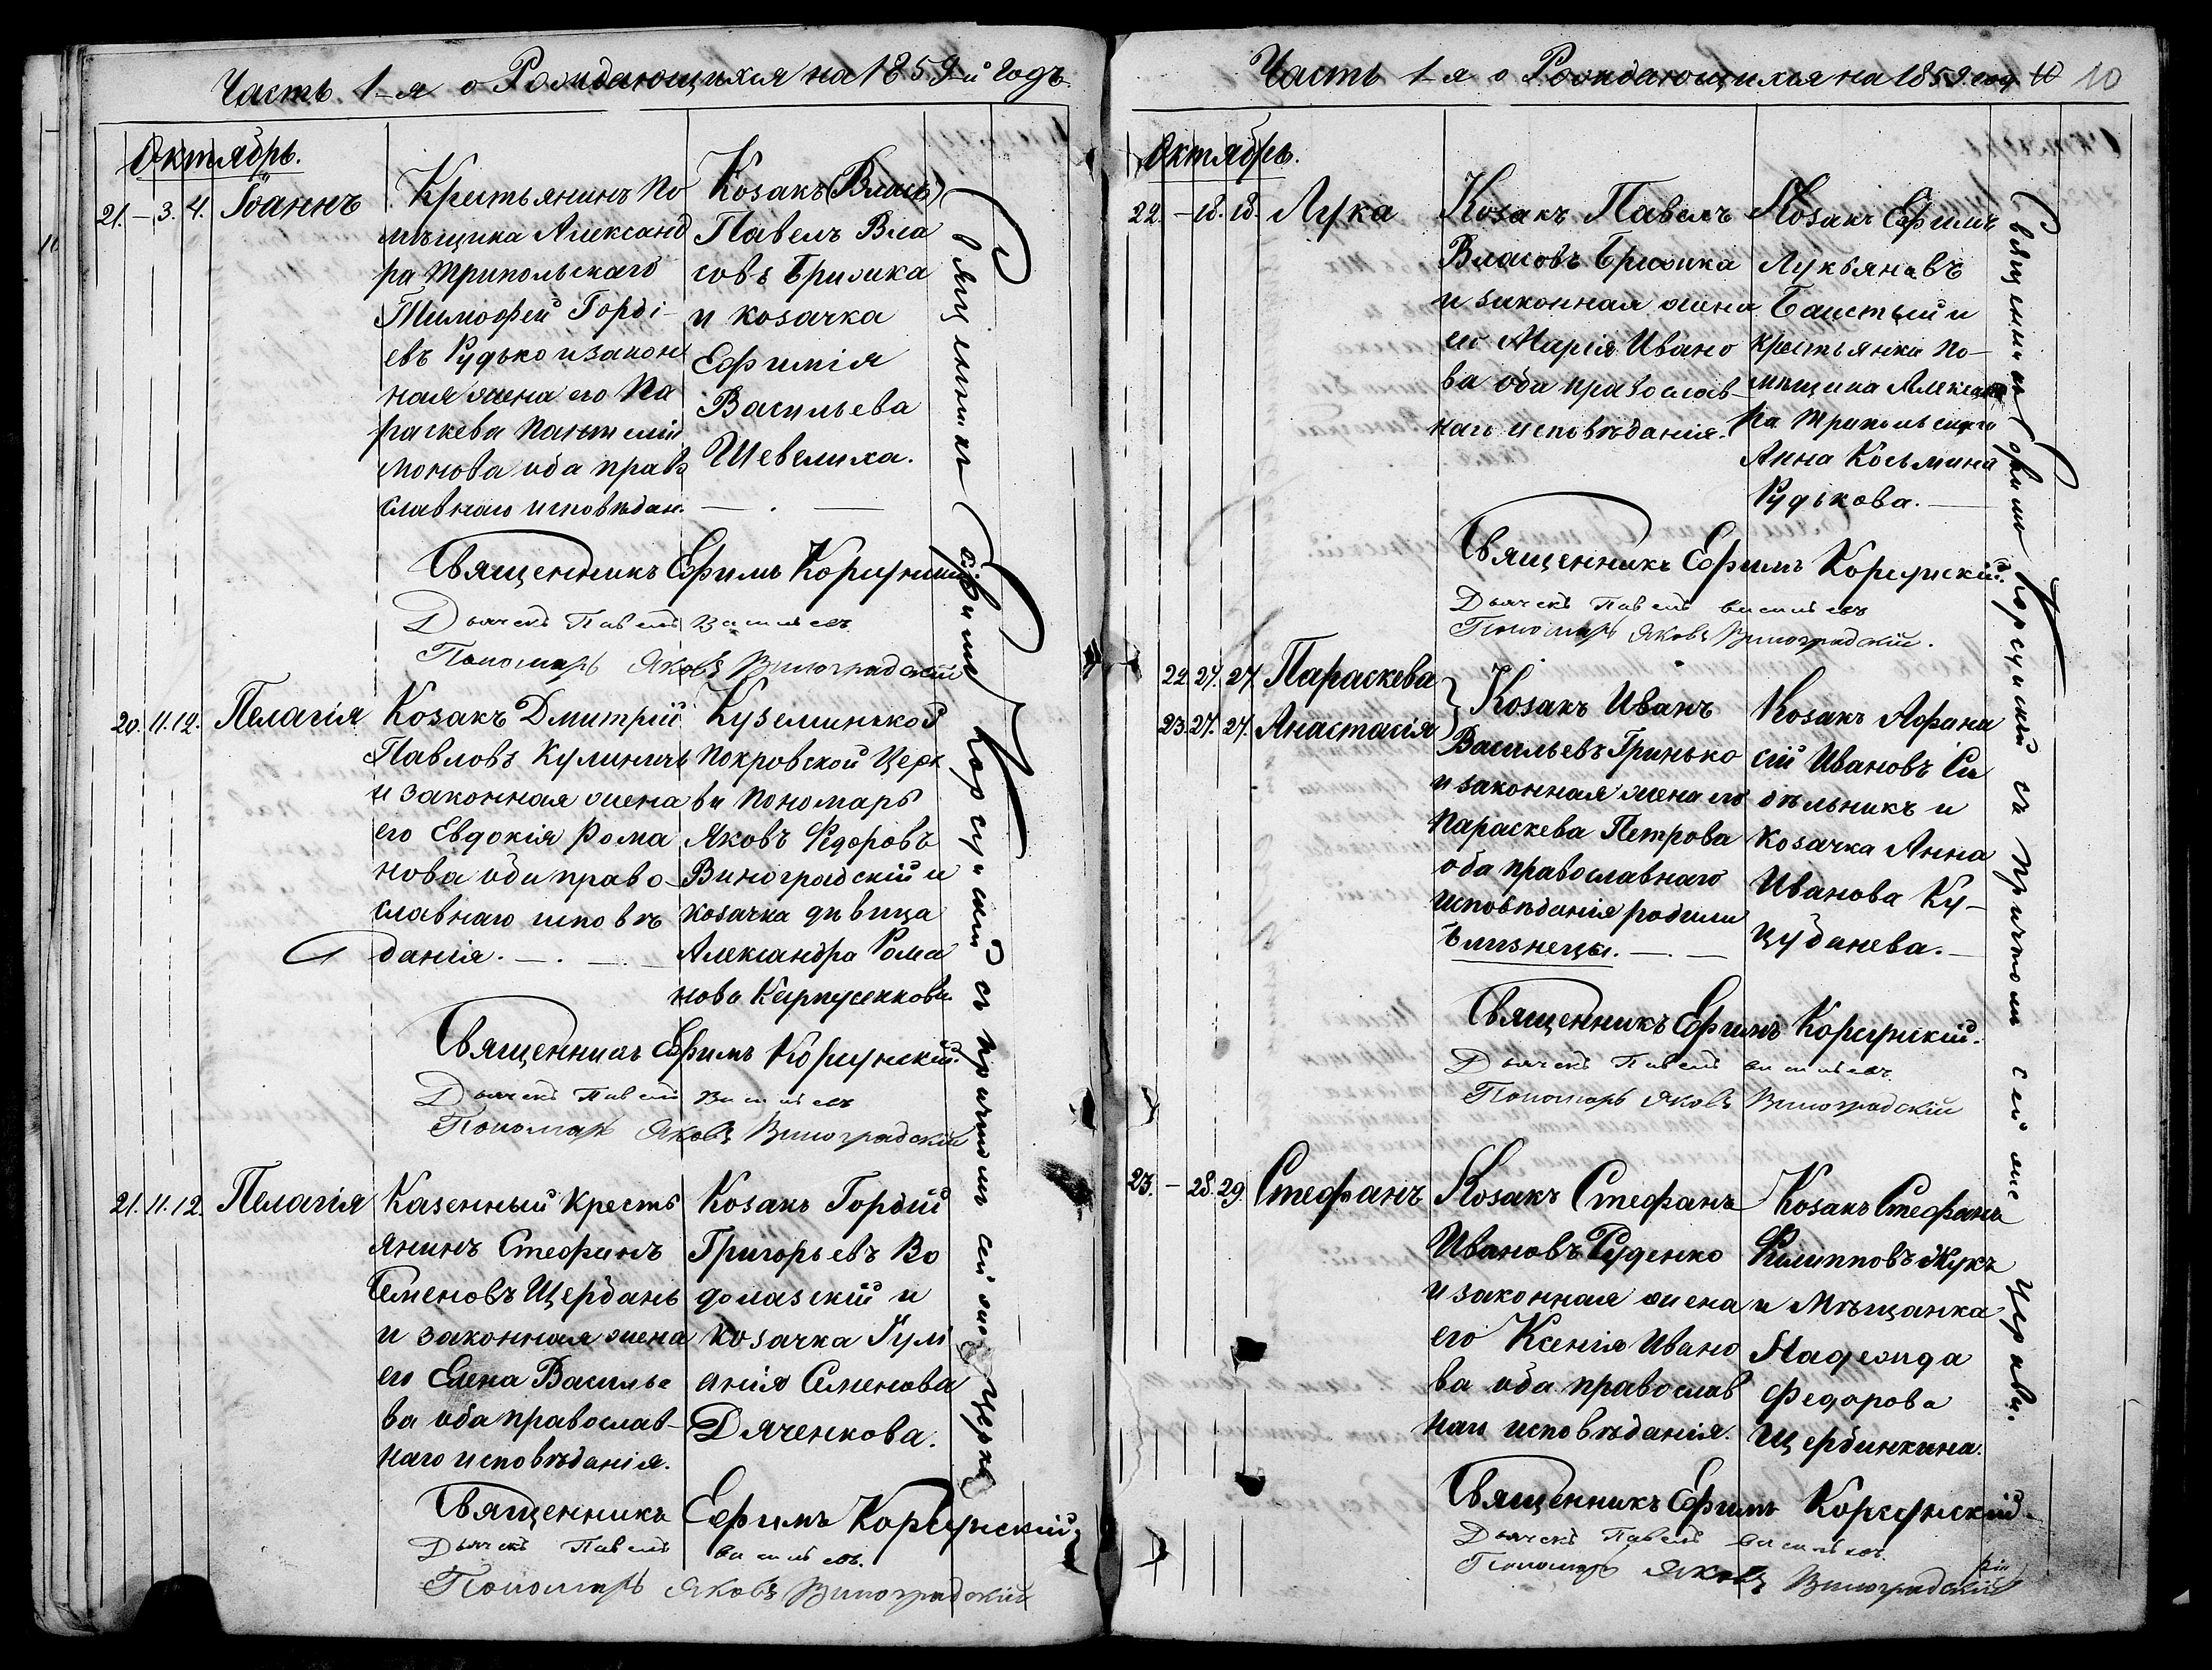 Часть 1-я о Рождающихся на 1859-й годъ.
Октябрь.
21. – 3. 4. Іоаннъ
Крестьянинъ по
мѣщика Александ
ра Трипольскаго
Тимофей Горді-
евъ Рудько и закон
ная жена его Па
раскева Пантелий
монова оба право
славнаго исповѣдан.
Козакъ (Влась)
Павелъ Вла
совъ Брилика
и козачка
Ефимія
Васильева
Шевелиха.
Священникъ Ефимъ Корсунскій
Дьячекъ Павелъ Васильевъ
Пономарь Яковъ Виноградскій
20. 11. 12. Пелагія
Козакъ Дмитрій
Павловъ Кулиничъ
и законная жена
его Евдокія Рома
нова оба право-
славнаго исповѣ
данія.
Куземинской
Покровской Церк
ви Пономарь
Яковъ Федоровъ
Виноградскій и
козачка дѣвица
Александра Рома
нова Карпусенкова.
Священникъ Ефимъ Корсунскій.
Дьячекъ Павелъ Васильевъ
Пономарь Яковъ Виноградскій
21. 11. 12. Пелагія
Казенный кресть
янинъ Стефанъ
Семеновъ Щербань
и законная жена
его Елена Василье
ва оба православ-
наго исповѣданія.
Козакъ Гордій
Григорьевъ Во
долазскій и
козачка Іулі
анія Семенова
Дяченкова.
Священникъ Ефимъ Корсунскій
Дьячекъ Павелъ Васильевъ.
Пономарь Яковъ Виноградскій
Священникъ Ефимъ Корсунскій съ причтомъ сей же Церкви
Часть 1-я о Рождающихся на 1859 год 10 10
Октябрь.
22 – 18. 18. Лука
Козакъ Павелъ
Власовъ Брилика
и законная жена
его Марія Ивано
ва оба православ-
наго исповѣданія.
Козакъ Ефимъ
Лукьяновъ
Баистый и
крестьянка по-
мѣщика Александ
ра Трипольскаго
Анна Косьмина
Рудькова.
Священникъ Ефимъ Корсунскій.
Дьячекъ Павелъ Васильевъ
Пономарь Яковъ Виноградскій.
22. 27. 27. Параскева
23. 27. 27. Анастасія
Козакъ Иванъ
Васильевъ Гринько
и законная жена его
Параскева Петрова
оба православнаго
исповѣданія родили
близнецы.
Козакъ Афана
сій Ивановъ Си
дѣльникъ и
козачка Анна
Иванова Ку-
цубанева.
Священникъ Ефимъ Корсунскій.
Дьячекъ Павелъ Васильевъ
Пономарь Яковъ Виноградскій
23. – 28. 29. Стефанъ
Козакъ Стефанъ
Ивановъ Руденко
и законная жена
его Ксенія Ивано
ва оба православ
наго исповѣданія.
Козакъ Стефанъ
Филипповъ Жукъ
и Мѣщанка
Надежда
Федорова
Щербинкина.
Священникъ Ефимъ Корсунскій.
Дьячекъ Павелъ Васильевъ.
Пономарь Яковъ Виноградскій
Священникъ Ефимъ Корсунскій съ причтомъ сей же Церкви.